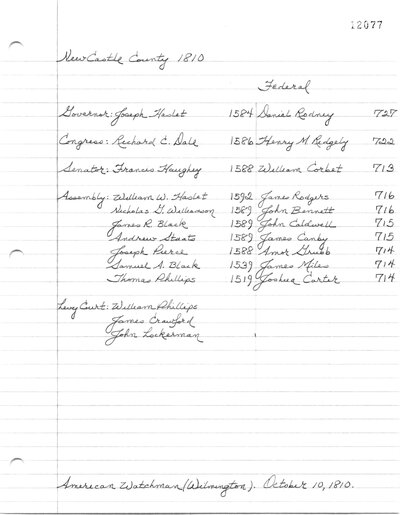 12077
New Castle County 1810
Federal
Governor: Joseph Haslet 1584 Daniel Rodney 727
Congress: Richard C. Dale 1586 Henry M. Ridgely 722
Senator: Francis Haughey 1588 William Corbet 713
Assembly: William W. Haslet 1592 James Rodgers 716
Nicholas G. Williamson 1589 John Bennett 716
James R. Black 1589 John Caldwell 715
Andrew Staats 1589 James Canby 715
Joseph Pierce 1588 Amor Grubb 714
Samuel A. Black 1539 James Miles 714
Thomas Phillips 1519 Joshua Carter 714
Levy Court: William Phillips
James Crawford
John Lockerman
American Watchman (Wilmington). October 10, 1810.